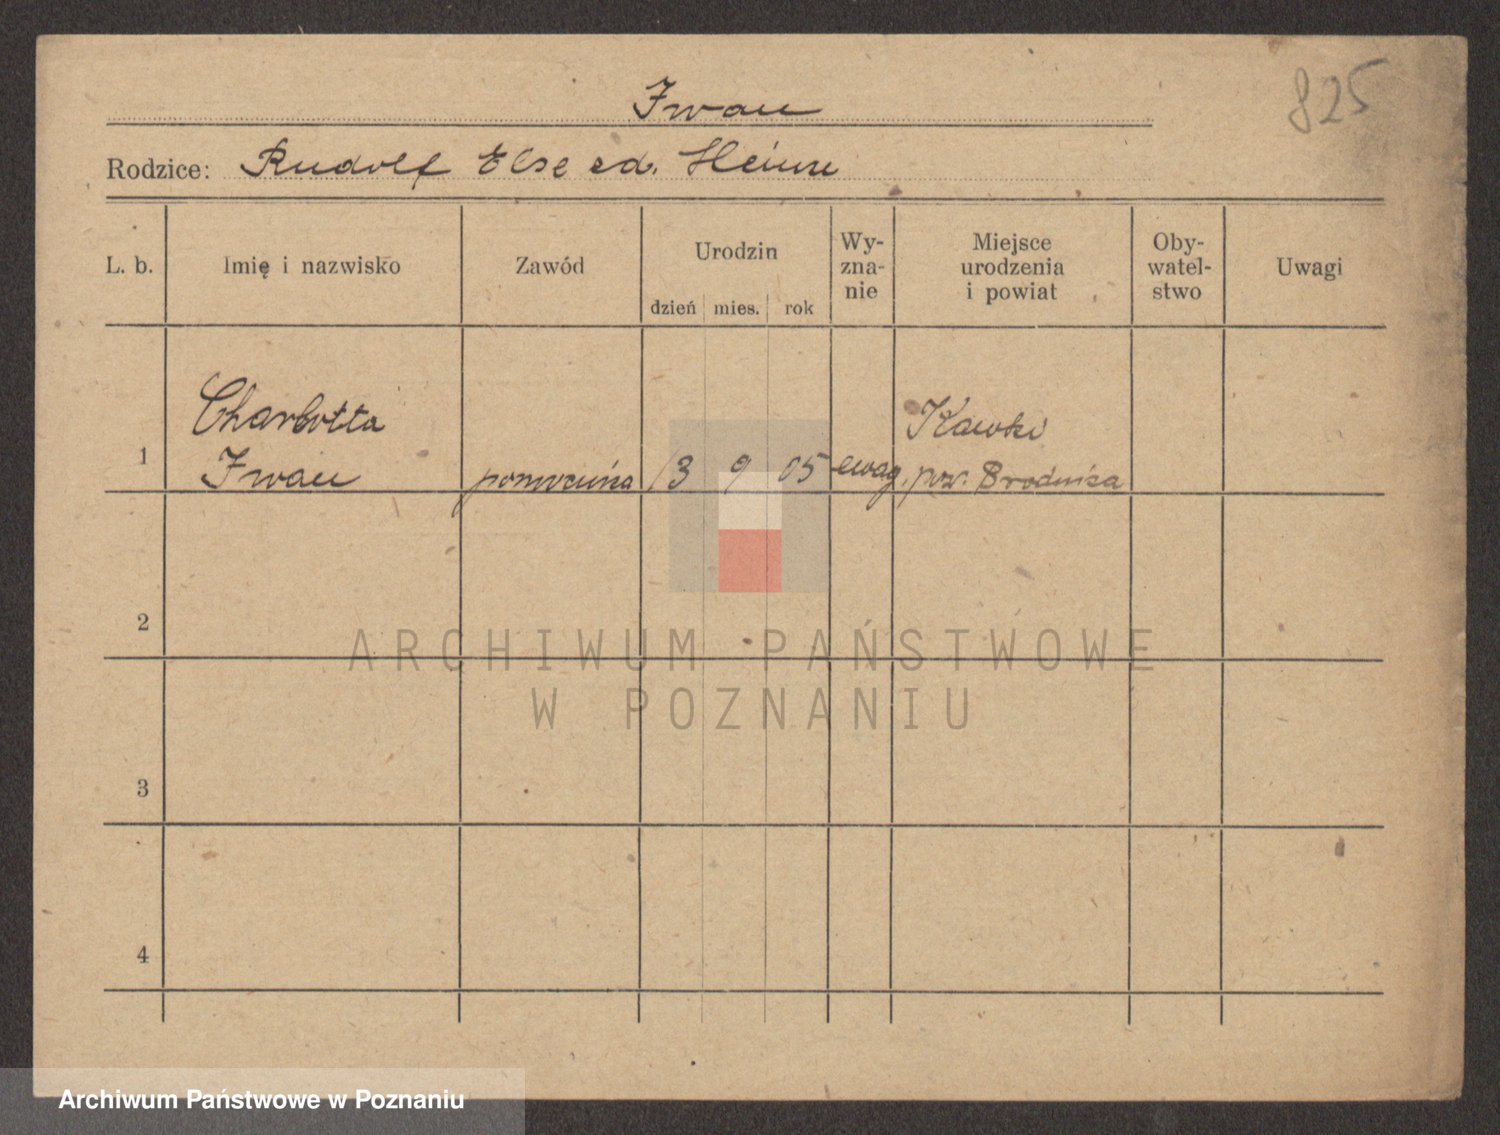 825
Iwan
Rodzice: Rudolf Else zd. Heinze
L. b.
Imię i nazwisko
Zawód
Urodzin
dzień mies. rok
Wy-
zna-
nie
Miejsce
urodzenia
i powiat
Oby-
watel-
stwo
Uwagi
1
Charlotta
Iwan
13 9 05 ewag.
Kawki
pow. Brodnica
2
3
4
ARCHIWUM PAŃSTWOWE
W POZNANIU
Archiwum Państwowe w Poznaniu